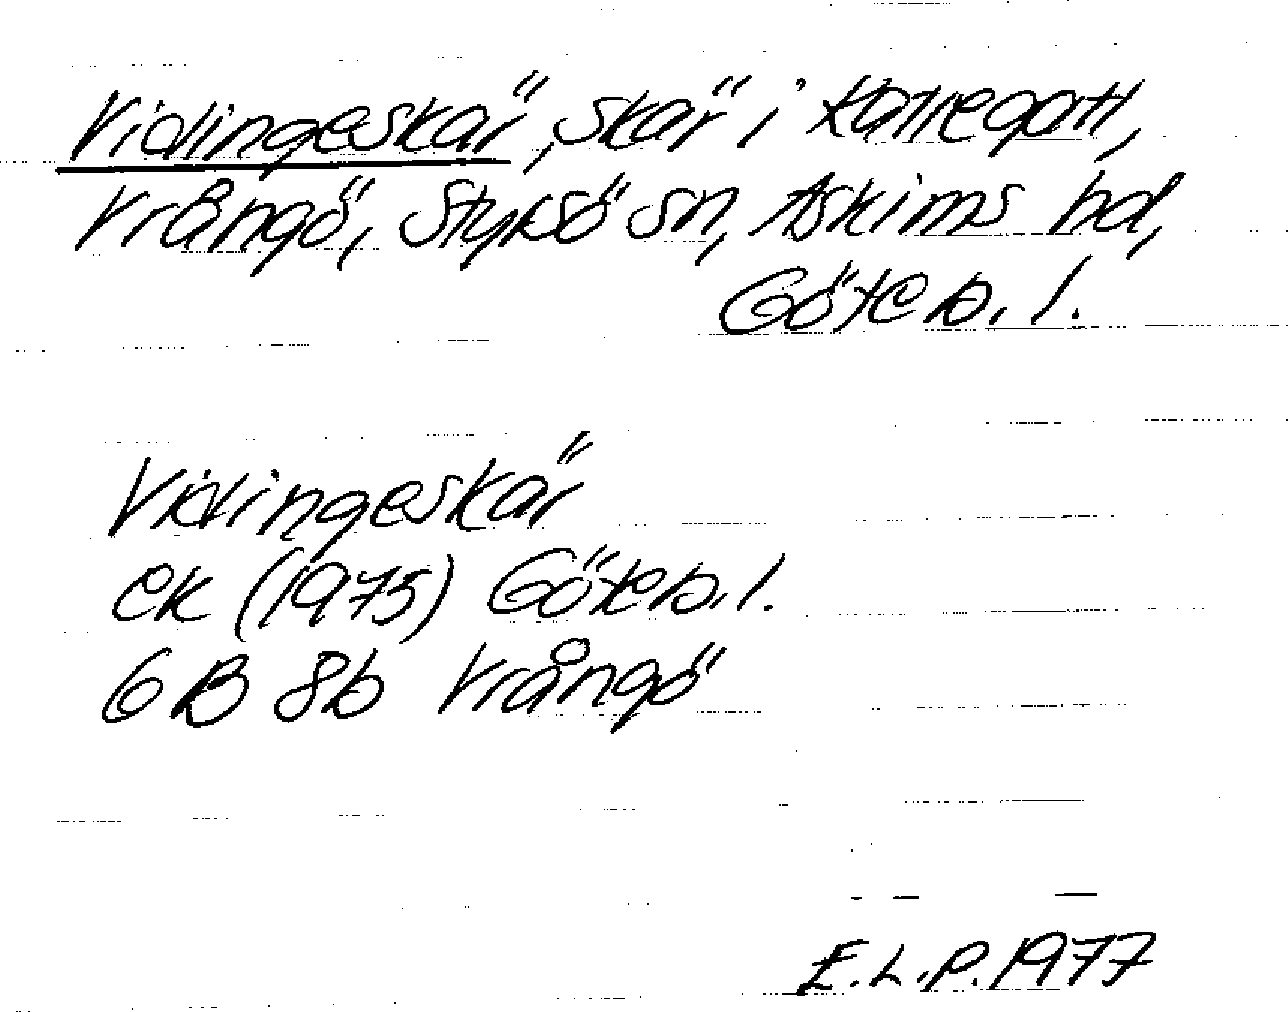 Vidingeskär, skär i Kattegatt,
Vrångö, Styrsö sn, Askims hd,
Göteb. l.
Vidingeskär
ek (1975) Göteb. l.
6B 8b Vrångö
E.L.P. 1977